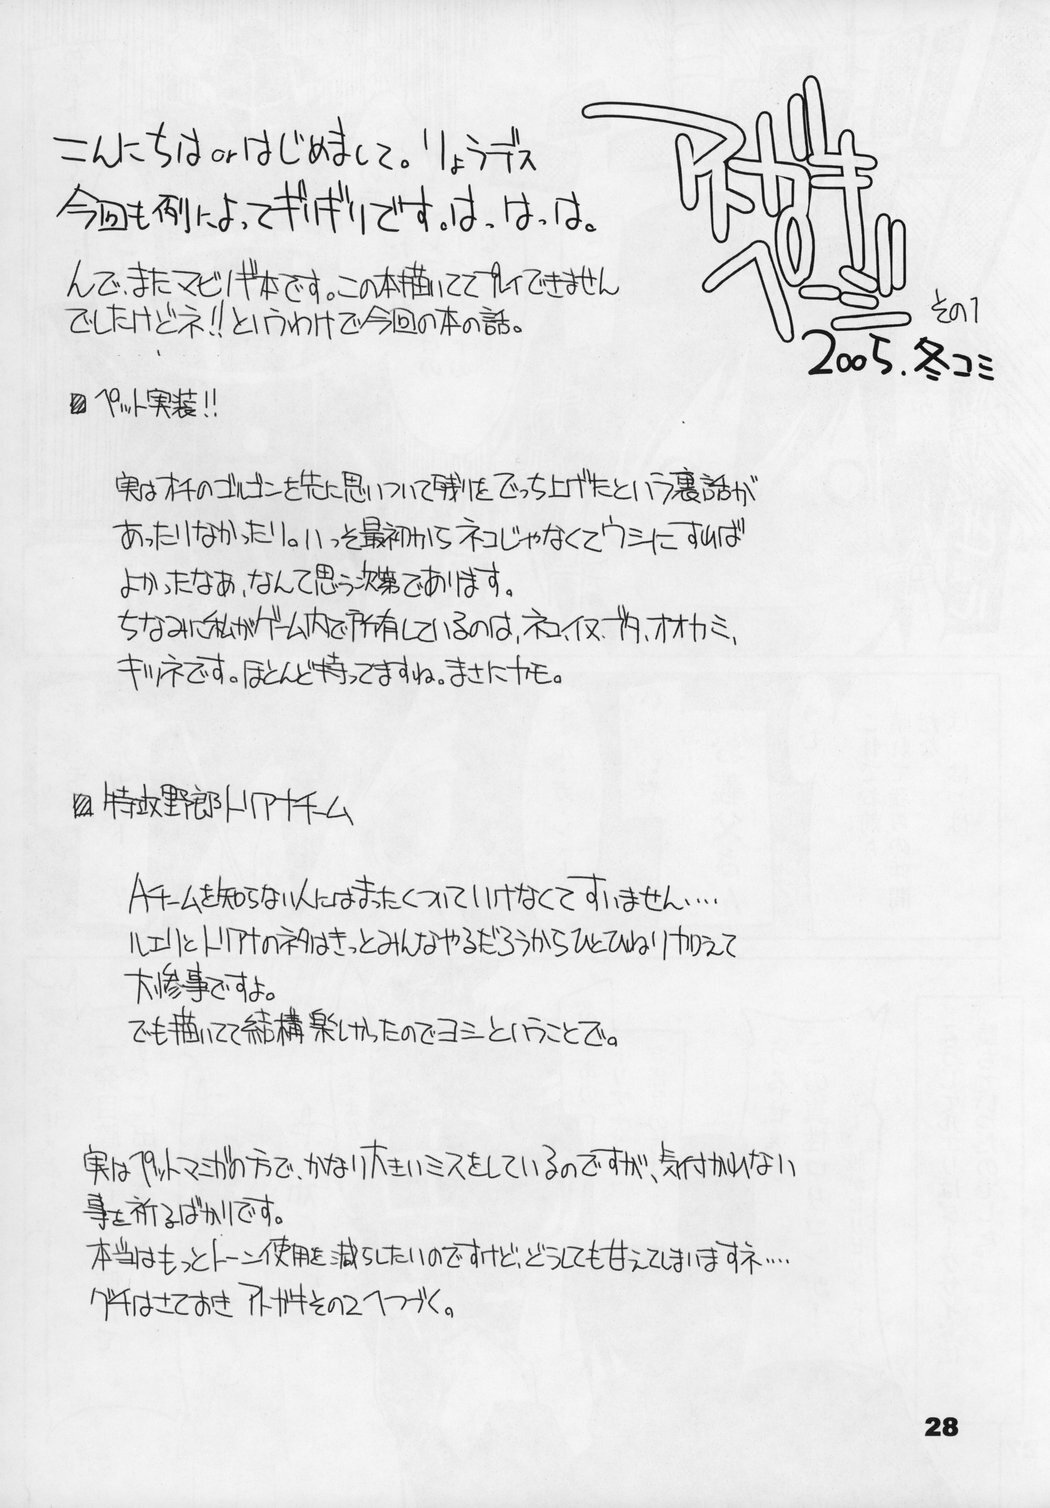 アトがきページ
その1
2005.冬コミ
こんにちはorはじめまして。りょうデス
今回も例によってギリギリです。は、は、は。
んで、またマビノギ本です。この本描いててプレイできません
でしたけどネ!!というわけで今回の本の話。
ペット実装!!
実はオチのゴルゴンを先に思いついて残りをでっち上げたという裏話が
あったりなかったり。いっそ最初からネコじゃなくてウシにすれば
よかったなぁ、なんて思う次第であります。
ちなみに私がゲーム内で所有しているのは、ネコ、イヌ、ブタ、オオカミ、
キツネです。ほとんど持ってますね。まさにカモ。
特攻野郎トリアナチーム
Aチームを知らない人にはまったくついていけなくてすいません‥‥
ルエリとトリアナのネタはきっとみんなやるだろうからひとひねり加えて
大惨事ですよ。
でも描いてて結構楽しかったのでヨシということで。
実はペットマンガの方で、かなり大きいミスをしているのですが、気付かれない
事を祈るばかりです。
本当はもっとトーン使用を減らしたいのですけど、どうしても甘えてしまいますネ‥‥
グチはさておきアトガキその2へつづく。
28